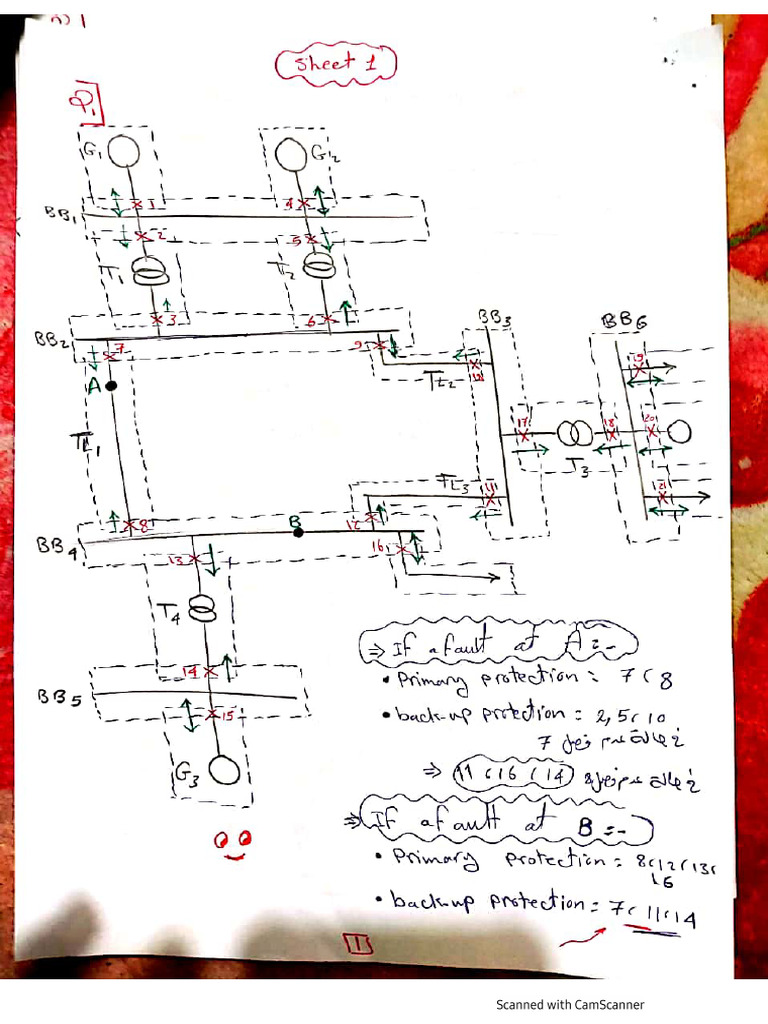 Sheet 1
Q1
G1
G2
1
4
BB1
2
5
T1
T2
3
6
BB2
7
9
BB3
BB6
A
TL2
10
19
17
18
20
T3
TL1
TL3
11
21
8
B
12
BB4
13
16
T4
14
BB5
15
G3
⇒ If a fault at A :-
• Primary protection = 7 , 8
• back-up protection = 2, 5 , 10
7
⇒ 11 , 16 , 14
⇒ If a fault at B :-
• Primary protection = 8 , 12 , 13 ,
16
• back-up protection = 7 , 11 , 14
1
Scanned with CamScanner